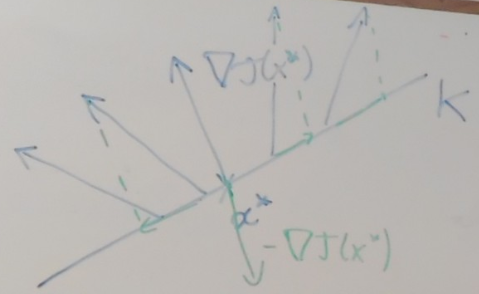 ∇J(x*)
K
x*
-∇J(x*)